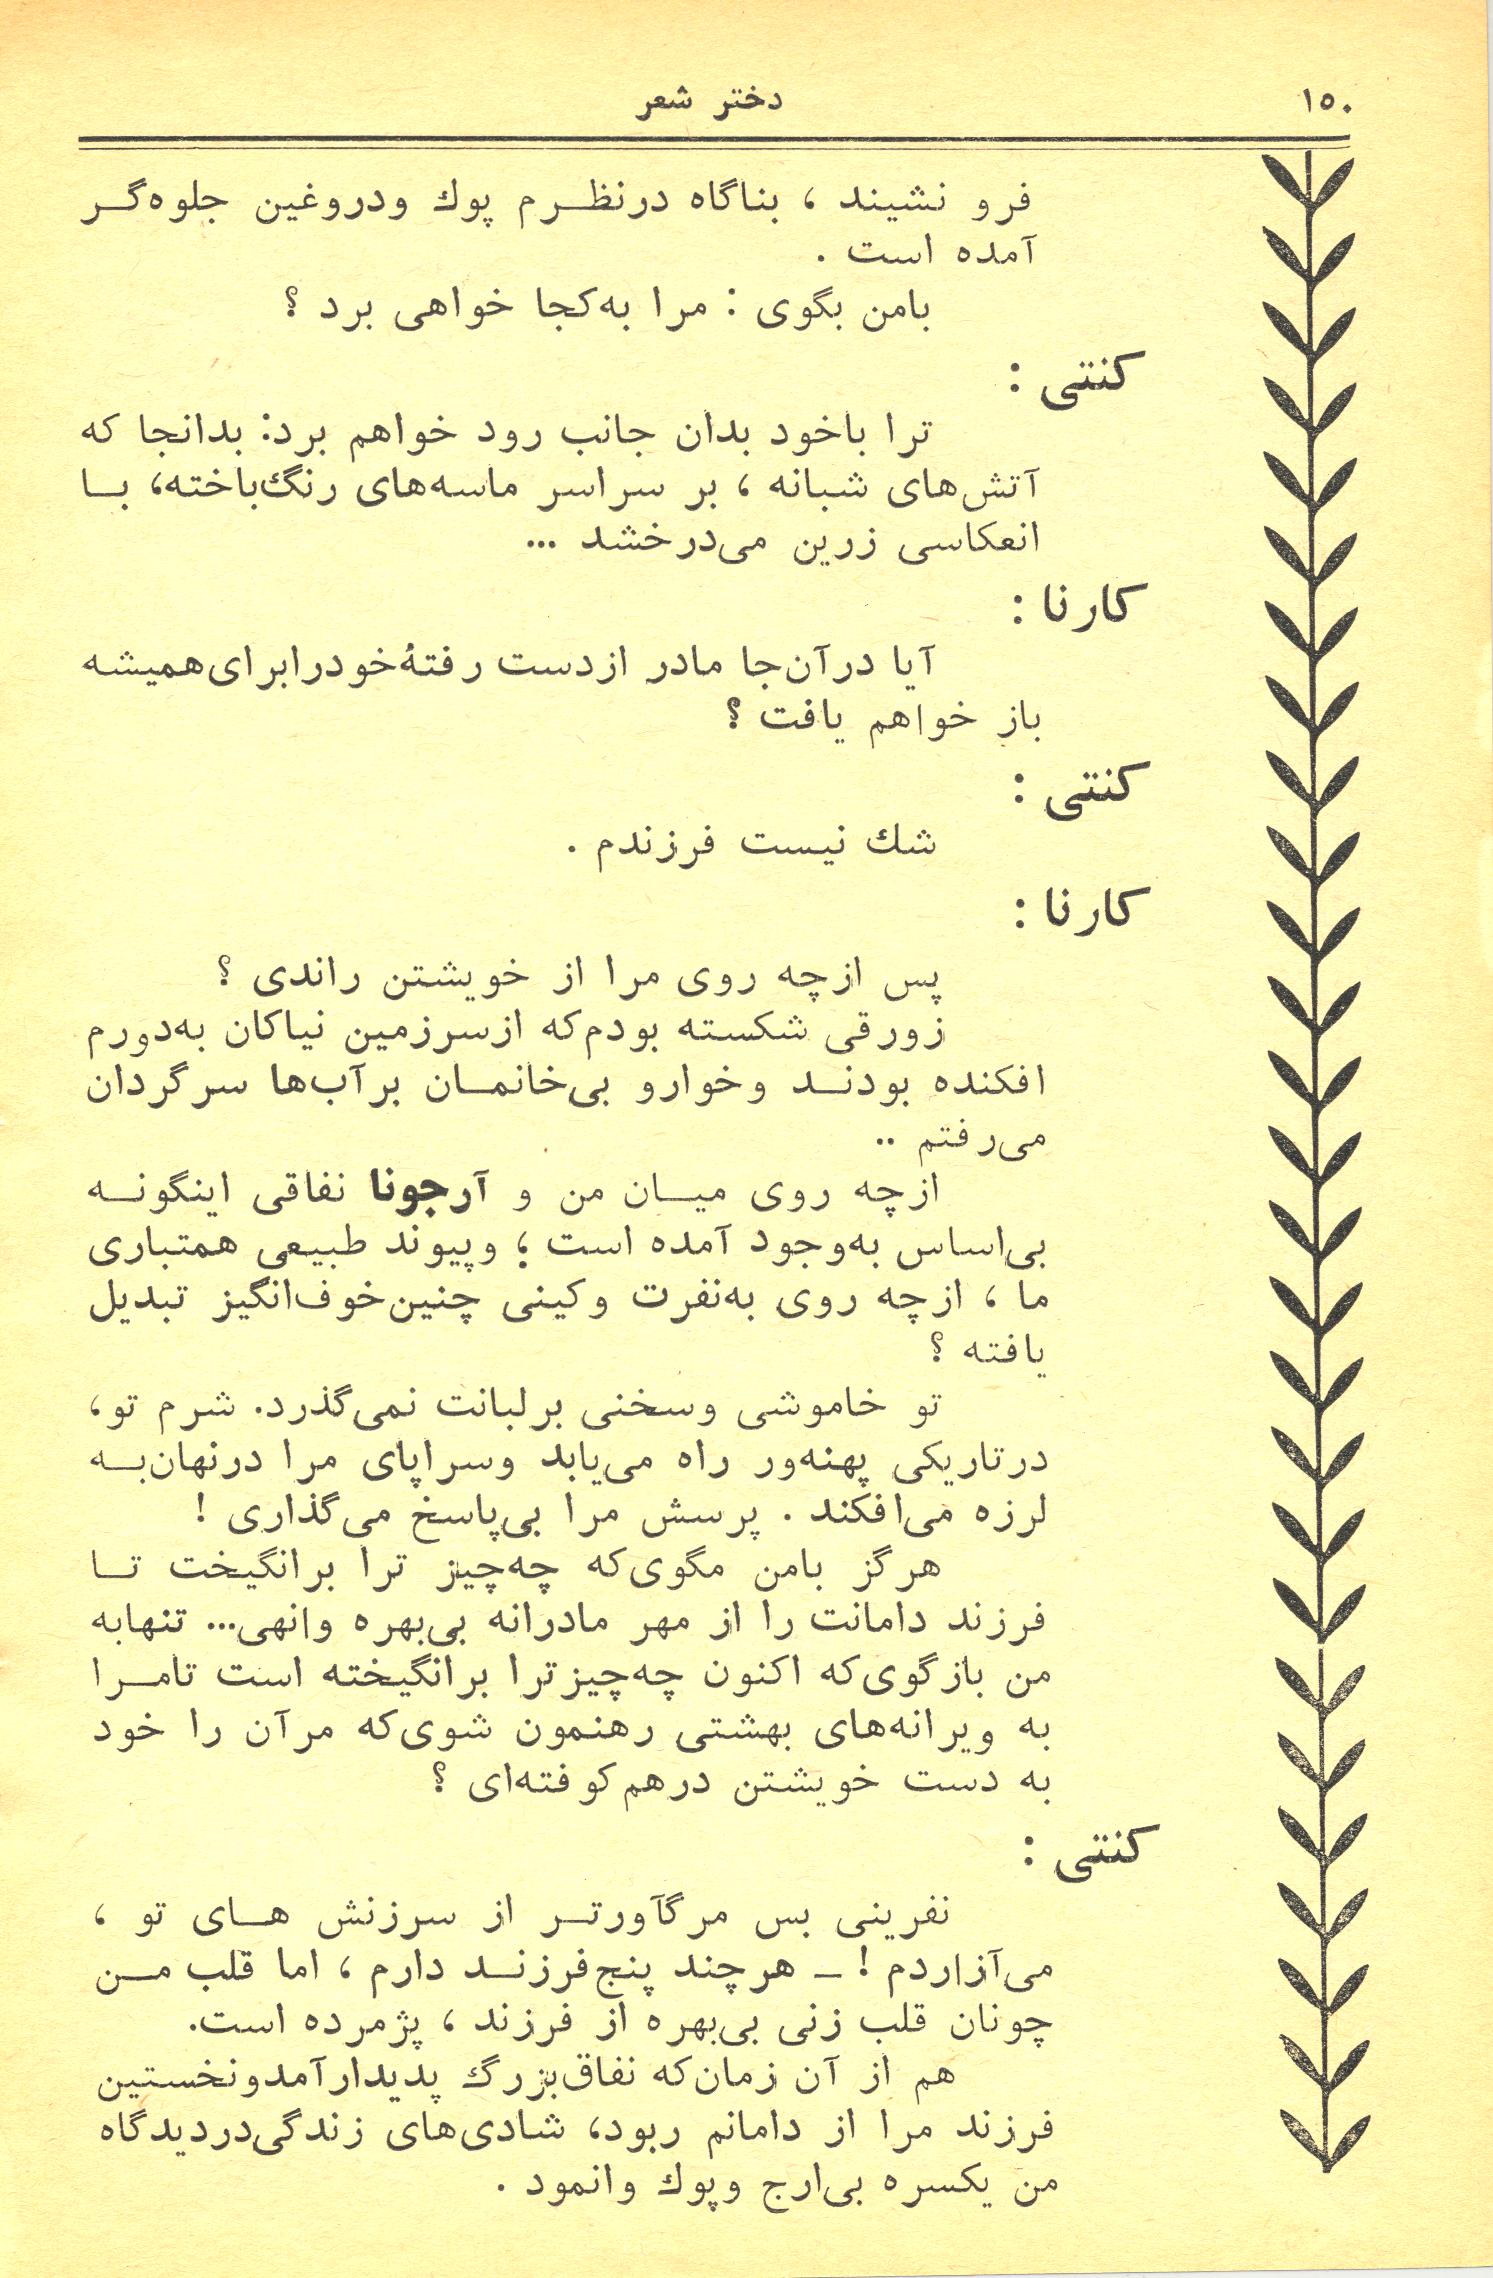 ۱۵۰
دختر شعر
فرو نشیند ، بناگاه درنظرم پوك ودروغین جلوه‌گر
آمده است .
بامن بگوی : مرا به‌کجا خواهی برد ؟
کنتی :
ترا باخود بدان جانب رود خواهم برد: بدانجا که
آتش‌های شبانه ، بر سراسر ماسه‌های رنگ‌باخته، با
انعکاسی زرین می‌درخشد ...
کارنا :
آیا درآن‌جا مادر ازدست رفتهٔ‌خودرابرای‌همیشه
باز خواهم یافت ؟
کنتی :
شك نیست فرزندم .
کارنا :
پس ازچه روی مرا از خویشتن راندی ؟
زورقی شکسته بودم‌که ازسرزمین نیاکان به‌دورم
افکنده بودند وخوارو بی‌خانمان برآب‌ها سرگردان
می‌رفتم ..
ازچه روی میان من و آرجونا نفاقی اینگونه
بی‌اساس به‌وجود آمده است ؛ وپیوند طبیعی همتباری
ما ، ازچه روی به‌نفرت وکینی چنین‌خوف‌انگیز تبدیل
یافته ؟
تو خاموشی وسخنی برلبانت نمی‌گذرد. شرم تو،
درتاریکی پهنه‌ور راه می‌یابد وسراپای مرا درنهان‌به
لرزه می‌افکند . پرسش مرا بی‌پاسخ می‌گذاری !
هرگز بامن مگوی‌که چه‌چیز ترا برانگیخت تا
فرزند دامانت را از مهر مادرانه بی‌بهره وانهی... تنهابه
من بازگوی‌که اکنون چه‌چیزترا برانگیخته است تامرا
به ویرانه‌های بهشتی رهنمون شوی‌که مرآن را خود
به دست خویشتن درهم‌کوفته‌ای ؟
کنتی :
نفرینی بس مرگ‌آورتر از سرزنش های تو ،
می‌آزاردم ! ـ هرچند پنج‌فرزند دارم ، اما قلب من
چونان قلب زنی بی‌بهره از فرزند ، پژمرده است.
هم از آن زمان‌که نفاق‌بزرگ پدیدارآمدونخستین
فرزند مرا از دامانم ربود، شادی‌های زندگی‌دردیدگاه
من یکسره بی‌ارج وپوك وانمود .